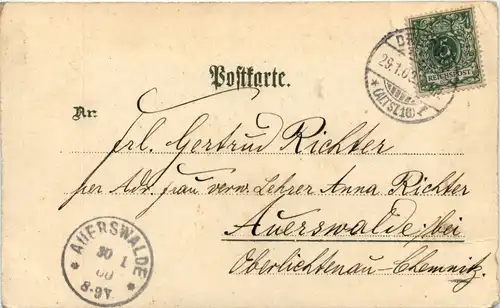 5
REICHSPOST
29.1.0
(ALTST.10)
Postkarte.
An:
Frl. Gertrud Richter
per Adr. Frau verw. Lehrer Anna Richter
Auerswalde bei
Oberlichtenau-Chemnitz.
AUERSWALDE
30 1
00
8-9V